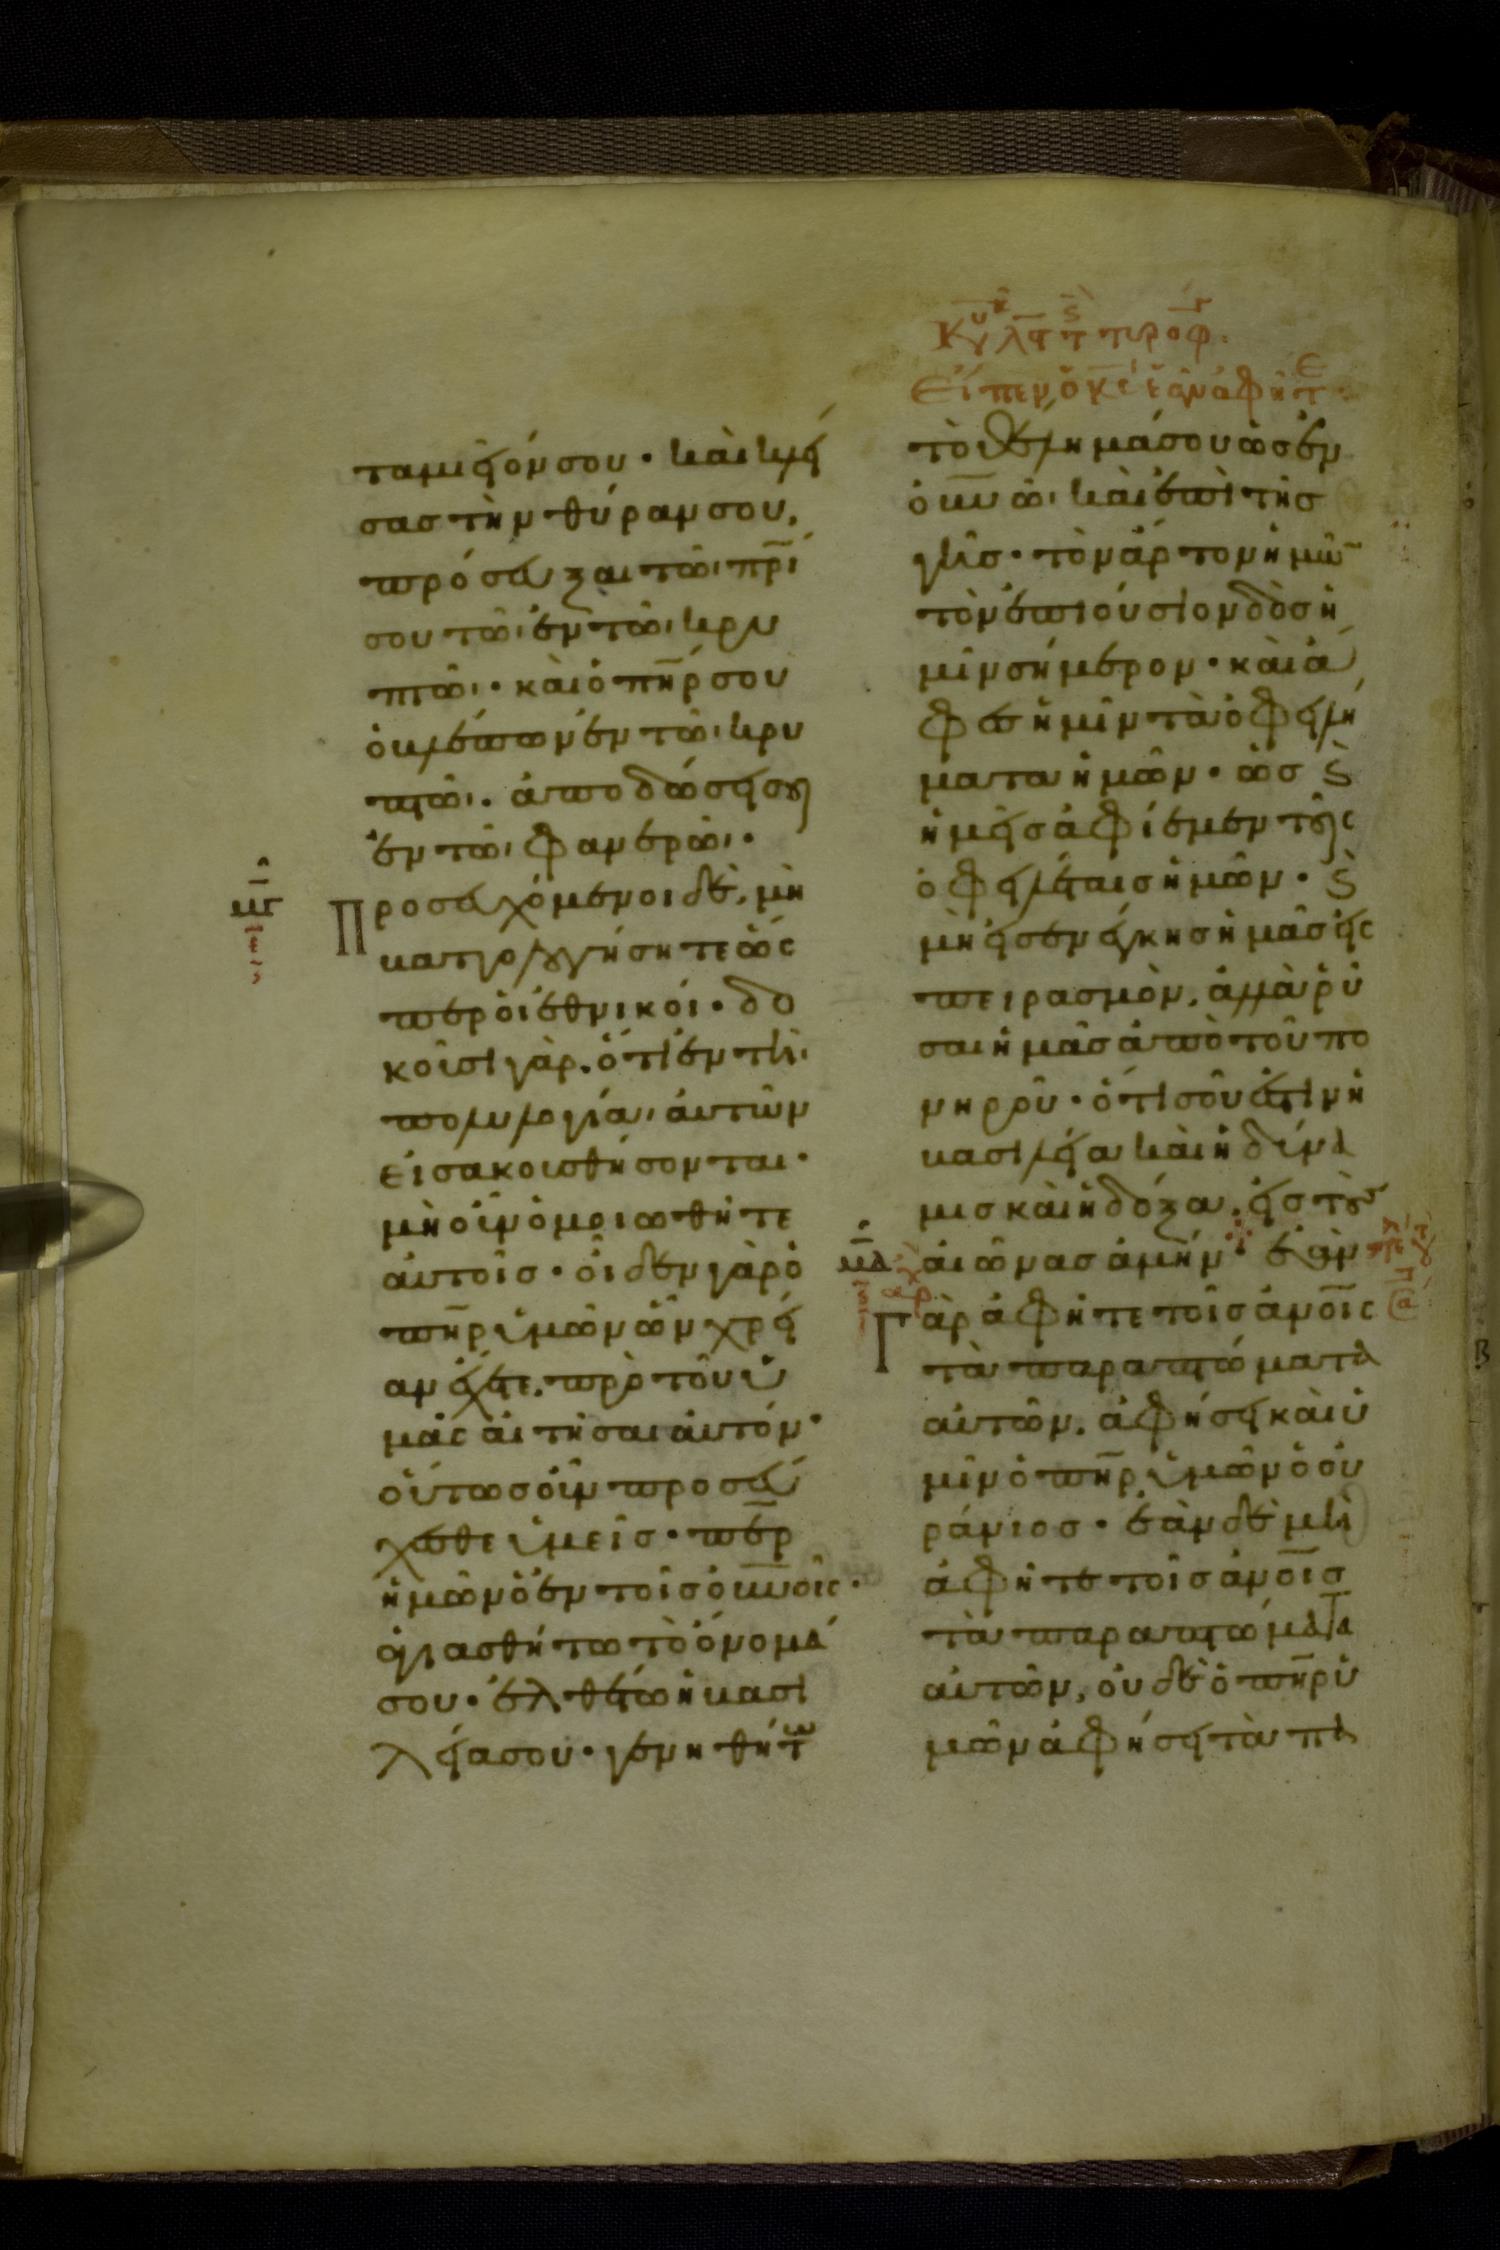 ταμιεῖόν σου · καὶ κλεί
σας τὴν θύραν σου,
πρόσευξαι τῶι πρι
σου τῶι ἐν τῶι κρυ
πτῶι · καὶ ὁ πηρ σου
ὁ βλέπων ἐν τῶι κρυ
πτῶι · ἀποδώσει σοι
ἐν τῶι φανερῶι ·
μγ
Προσευχόμενοι δὲ, μὴ
βαττολογήσητε ὥς
περ οἱ ἐθνικοί · δο
κοῦσι γὰρ, ὅτι ἐν τῆι
πολυλογίαι αὐτῶν
εἰσακουσθήσονται ·
μὴ οὖν ὁμοιωθῆτε
αὐτοῖς · οἶδεν γὰρ ὁ
πηρ ὑμῶν ὧν χρεί
αν ἔχετε, πρὸ τοῦ ὑ
μᾶς αἰτῆσαι αὐτόν ·
οὕτως οὖν προσεύ
χεσθε ὑμεῖς · περ
ἡμῶν ὁ ἐν τοῖς οὐνοῖς ·
ἁγιασθήτω τὸ ὄνομά
σου · ἐλθέτω ἡ βασι
λεία σου · γενηθήτω
Κυ τ προφ.
Εἶπεν ὁ κς ἐὰν ἀφῆτε
τὸ θέλημά σου ὡς ἐν
οὐνῶ, καὶ ἐπὶ τῆς
γῆς · τὸν ἄρτον ἡμῶν
τὸν ἐπιούσιον δὸς ἡ
μῖν σήμερον · καὶ ἄ
φες ἡμῖν τὰ ὀφειλή
ματα ἡμῶν · ὡς ϗ
ἡμεῖς ἀφίεμεν τοῖς
ὀφειλέταις ἡμῶν · ϗ
μὴ εἰσενέγκης ἡμᾶς εἰς
πειρασμὸν, ἀλλὰ ῥῦ
σαι ἡμᾶς ἀπὸ τοῦ πο
νηροῦ · ὅτι σοῦ ἐστιν ἡ
βασιλεία καὶ ἡ δύνα
μις καὶ ἡ δόξα, εἰς τοὺς
μδ
αἰῶνας ἀμήν · ἐὰν
Γὰρ ἀφῆτε τοῖς ἀνοις
τὰ παραπτώματα
αὐτῶν, ἀφήσει καὶ ὑ
μῖν ὁ πηρ ὑμῶν ὁ οὐ
ράνιος · ἐὰν δὲ μὴ
ἀφῆτε τοῖς ἀνοις
τὰ παραπτώματα
αὐτῶν, οὐδὲ ὁ πηρ ὑ
μῶν ἀφήσει τὰ πα